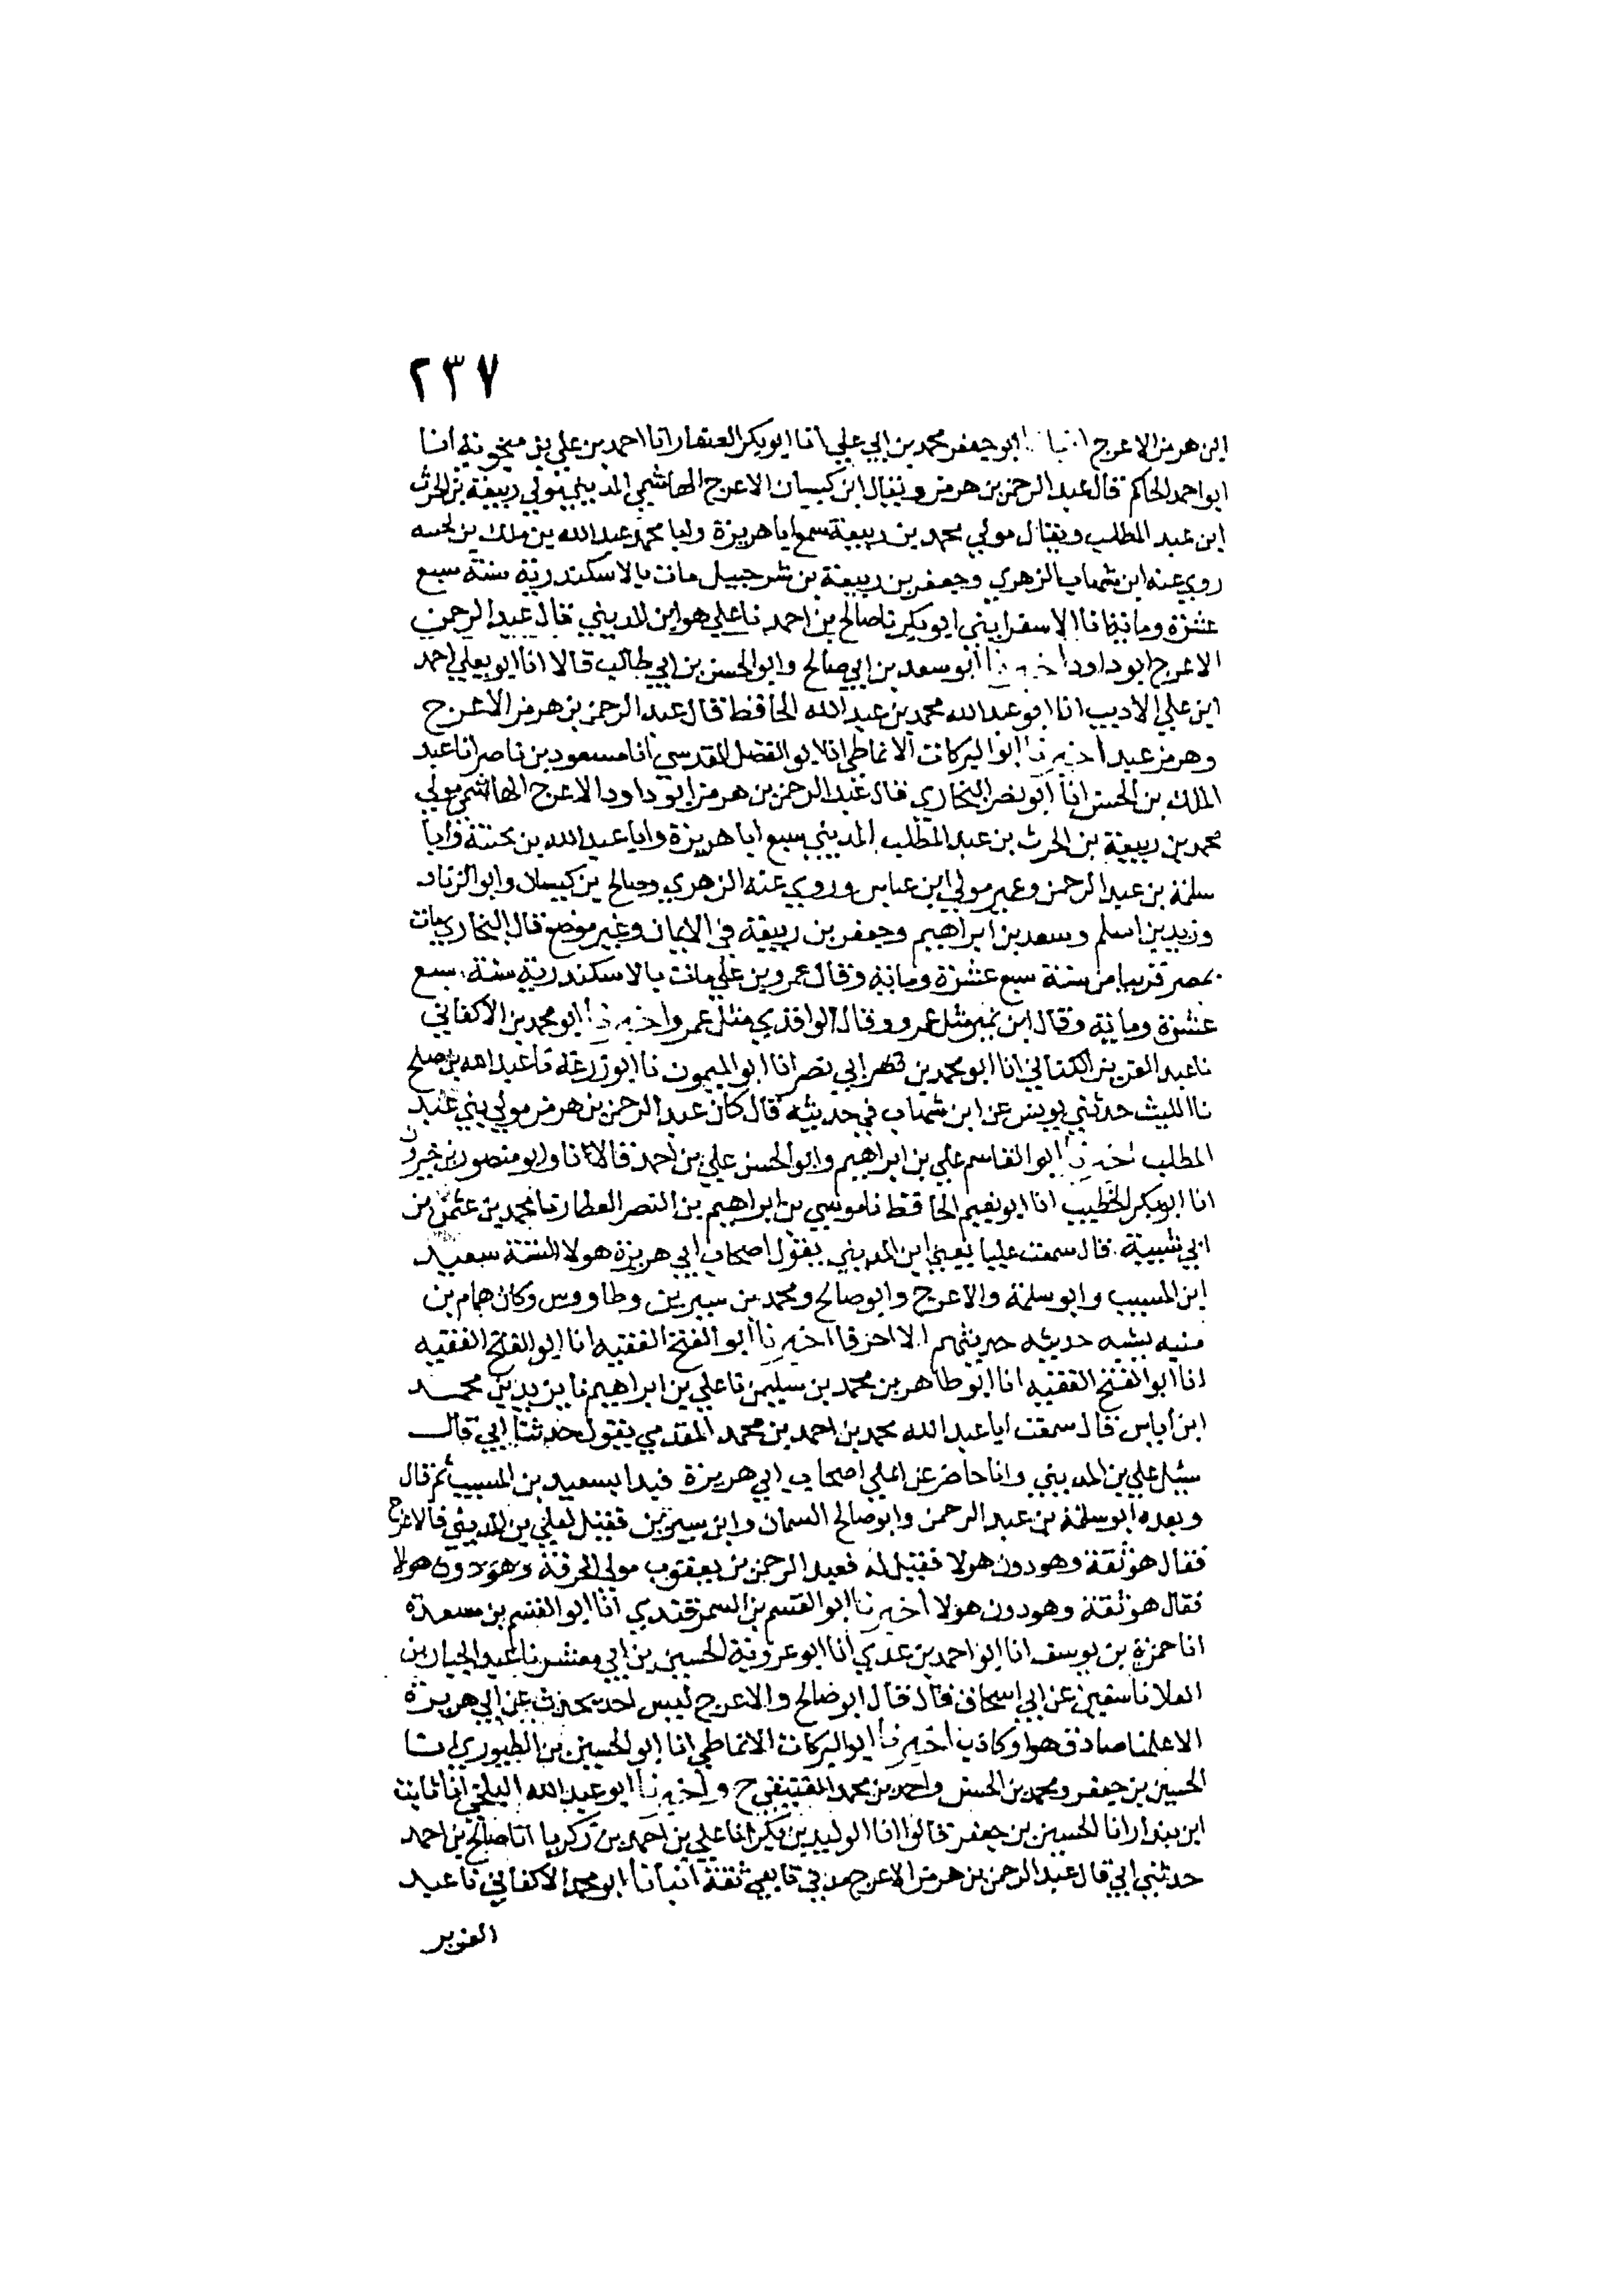 ٢٣٧
ابن هرمز الاعرج انبانا ابو جعفر محمد بن ابي علي انا ابو بكر الصفار انا احمد بن علي بن منجويه انا
ابو احمد الحاكم قال عبد الرحمن بن هرمز ويقال ابن كيسان الاعرج الهاشمي المديني مولي ربيعة بن الحرث
ابن عبد المطلب ويقال مولي محمد بن ربيعة سمع ابا هريرة وابا محمد عبد الله بن ملك بن بحينه
روي عنه ابن شهاب الزهري وجعفر بن ربيعة بن شرحبيل مات بالاسكندرية سنة سبع
عشرة ومائة انا الاسفرايني ابو بكر نا صالح بن احمد نا علي هو ابن المديني قال عبد الرحمن
الاعرج ابو داود اخبرنا ابو سعد بن ابي صالح وابو الحسن بن ابي طالب قالا انا ابو يعلي احمد
ابن علي الاديب انا ابو عبد الله محمد بن عبد الله الحافظ قال عبد الرحمن بن هرمز الاعرج
وهرمز عبد اخبرنا ابو البركات الانماطي انا ابو الفضل المقدسي انا مسعود بن ناصر انا عبد
الملك بن الحسن انا ابو نصر البخاري قال عبد الرحمن بن هرمز ابو داود الاعرج الهاشمي مولي
محمد بن ربيعة بن الحرث بن عبد المطلب المديني سمع ابا هريرة وابا عبد الله بن بحينة وابا
سلمة بن عبد الرحمن وعمير مولي ابن عباس وروي عنه الزهري وصالح بن كيسان وابو الزناد
وزيد بن اسلم وسعد بن ابراهيم وجعفر بن ربيعة في الايمان وغير موضع قال البخاري مات
بمصر قريبا من سنة سبع عشرة ومائة وقال عمرو بن علي مات بالاسكندرية سنة سبع
عشرة ومائة وقال ابن نمير مثل عمرو وقال الواقدي مثل عمرو اخبرنا ابو محمد بن الاكفاني
نا عبد العزيز الكتاني انا ابو محمد بن ابي نصر انا ابو الميمون نا ابو زرعة نا عبد الله بن صلح
نا الليث حدثني يونس عن ابن شهاب في حديثه قال كان عبد الرحمن بن هرمز مولي بني عبد
المطلب اخبرنا ابو القاسم علي بن ابراهيم وابو الحسن علي بن احمد قالا نا وابو منصور بن خيرون
انا ابو بكر الخطيب انا ابو نعيم الحافظ نا موسي بن ابراهيم بن النصر العطار نا محمد بن عثمن بن
ابي شيبة قال سمعت عليا يعني ابن المديني يقول اصحاب ابي هريرة هولا الستة سعيد
ابن المسيب وابو سلمة والاعرج وابو صالح ومحمد بن سيرين وطاووس وكان همام بن
منبه يشبه حديثه حديثهم الا احرفا اخبرنا ابو الفتح الفقيه انا ابو الفتح الفقيه
انا ابو الفتح الفقيه انا ابو طاهر بن محمد بن سليمن نا علي بن ابراهيم نا يزيد بن محمد
ابن اياس قال سمعت ابا عبد الله محمد بن احمد بن محمد المقدمي يقول حدثنا ابي قال
سئل علي بن المديني وانا حاضر عن اعلي اصحاب ابي هريرة فبدا بسعيد بن المسيب ثم قال
وبعده ابو سلمة بن عبد الرحمن وابو صالح السمان وابن سيرين فقيل لعلي بن المديني فالاعرج
فقال هو ثقة وهو دون هولا فقيل له فعبد الرحمن بن يعقوب مولي الحرقة وهو دون هولا
فقال هو ثقة وهو دون هولا اخبرنا ابو القسم بن السمرقندي انا ابو القسم بن مسعدة
انا حمزة بن يوسف انا ابو احمد بن عدي انا ابو عروبة الحسين بن ابي معشر نا عبد الجبار بن
العلا نا سفين عن ابي اسحاق قال قال ابو صالح والاعرج ليس احد يحدث عن ابي هريرة
الا علمنا صادق هو او كاذب اخبرنا ابو البركات الانماطي انا ابو الحسين بن الطيوري انا
الحسين بن جعفر ومحمد بن الحسن واحمد بن محمد العتيقي ح واخبرنا ابو عبد الله البلخي انا ثابت
ابن بندار انا الحسين بن جعفر قالوا انا الوليد بن بكر انا علي بن احمد بن زكريا انا صالح بن احمد
حدثني ابي قال عبد الرحمن بن هرمز الاعرج مدني تابعي ثقة انبانا ابو محمد الاكفاني نا عبد
العزيز